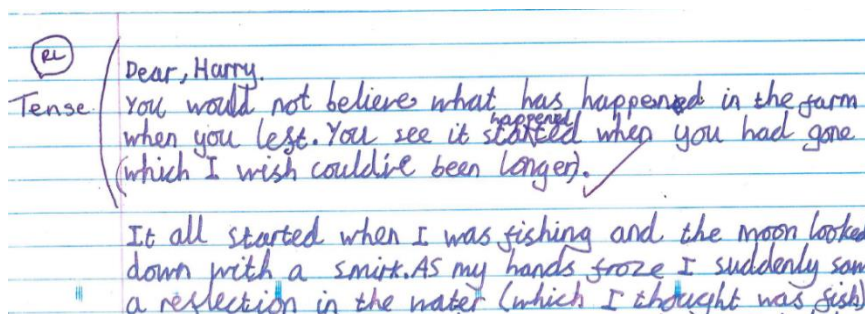 RL
Dear, Harry.
Tense You would not believe what has happened in the farm
happened
when you left. You see it started when you had gone
(which I wish could've been longer).
It all started when I was fishing and the moon looked
down with a smirk. AS my hands froze I suddenly saw
a reflection in the water (which I thought was fish)